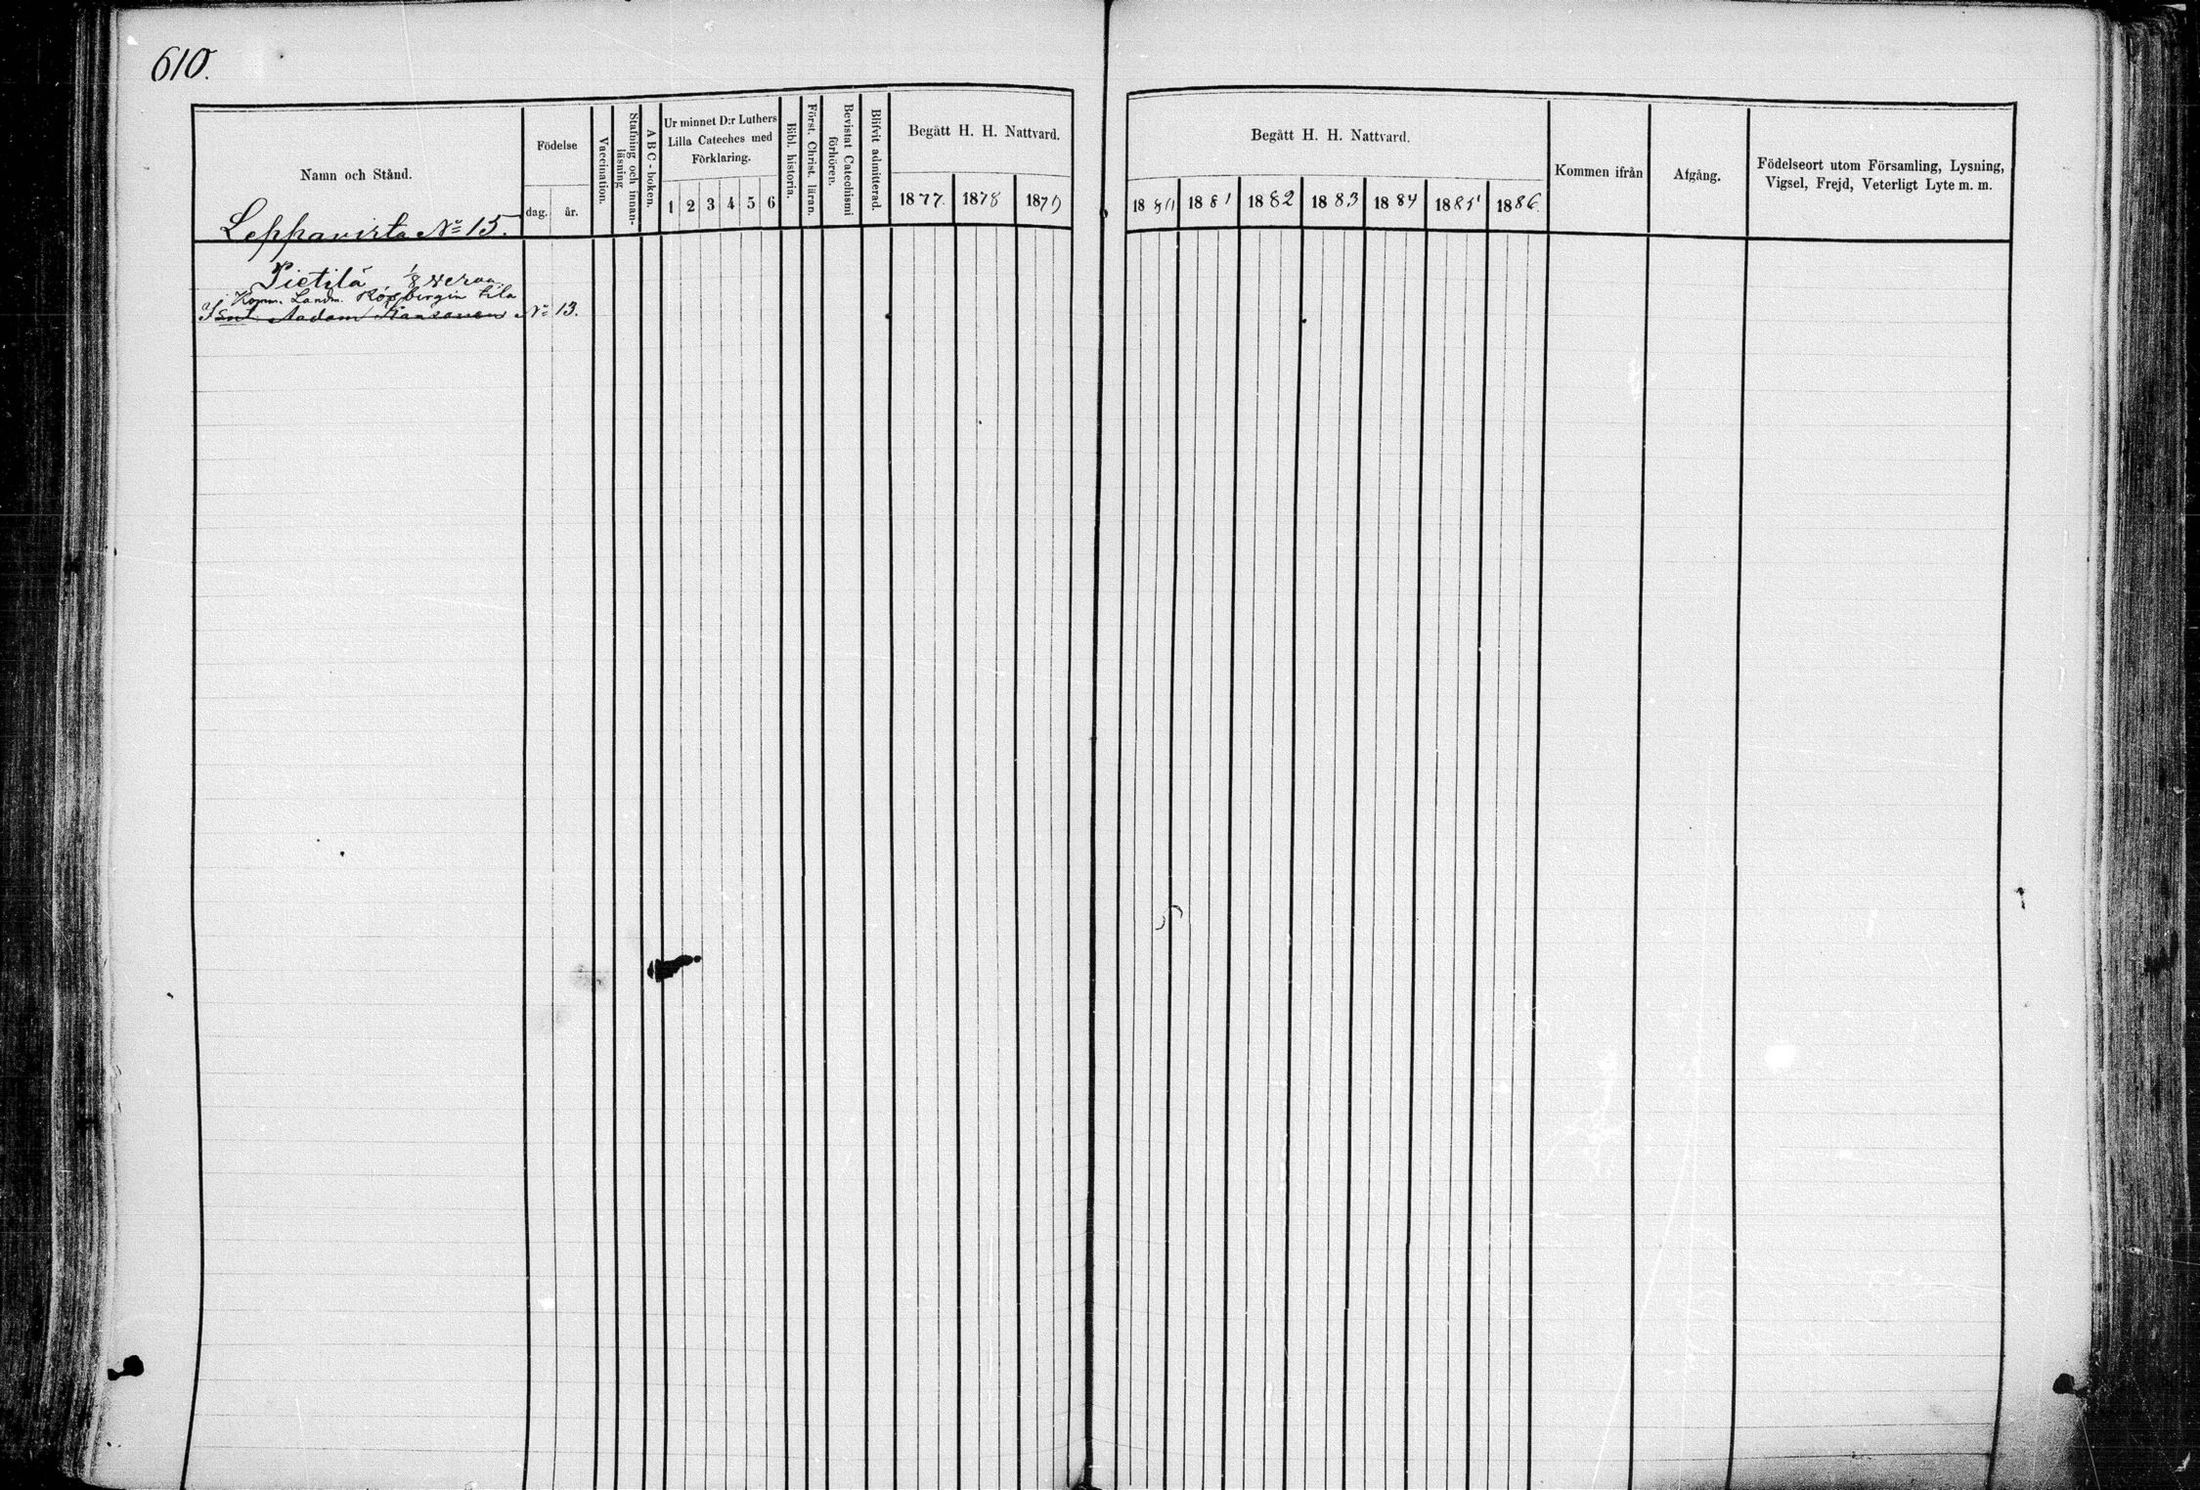 610.
Namn och Stånd.
Födelse
dag.
år.
Vaccination.
Stafning och innan-
läsning
ABC-boken.
Ur minnet D:r Luthers
Lilla Cateches med
Förklaring.
1 2 3 4 5 6
Bibl. historia.
Först. Christ. läran.
Bevistat Catechismi
förhören.
Blifvit admitterad.
Begått H. H. Nattvard.
1877. 1878 1879
Begått H. H. Nattvard.
1880 1881 1882 1883 1884 1885 1886.
Kommen ifrån
Afgång.
Födelseort utom Församling, Lysning,
Vigsel, Frejd, Veterligt Lyte m. m.
Leppävirta No 15.
Pietilä
Komm. Landm. tila
Aadam No 13.